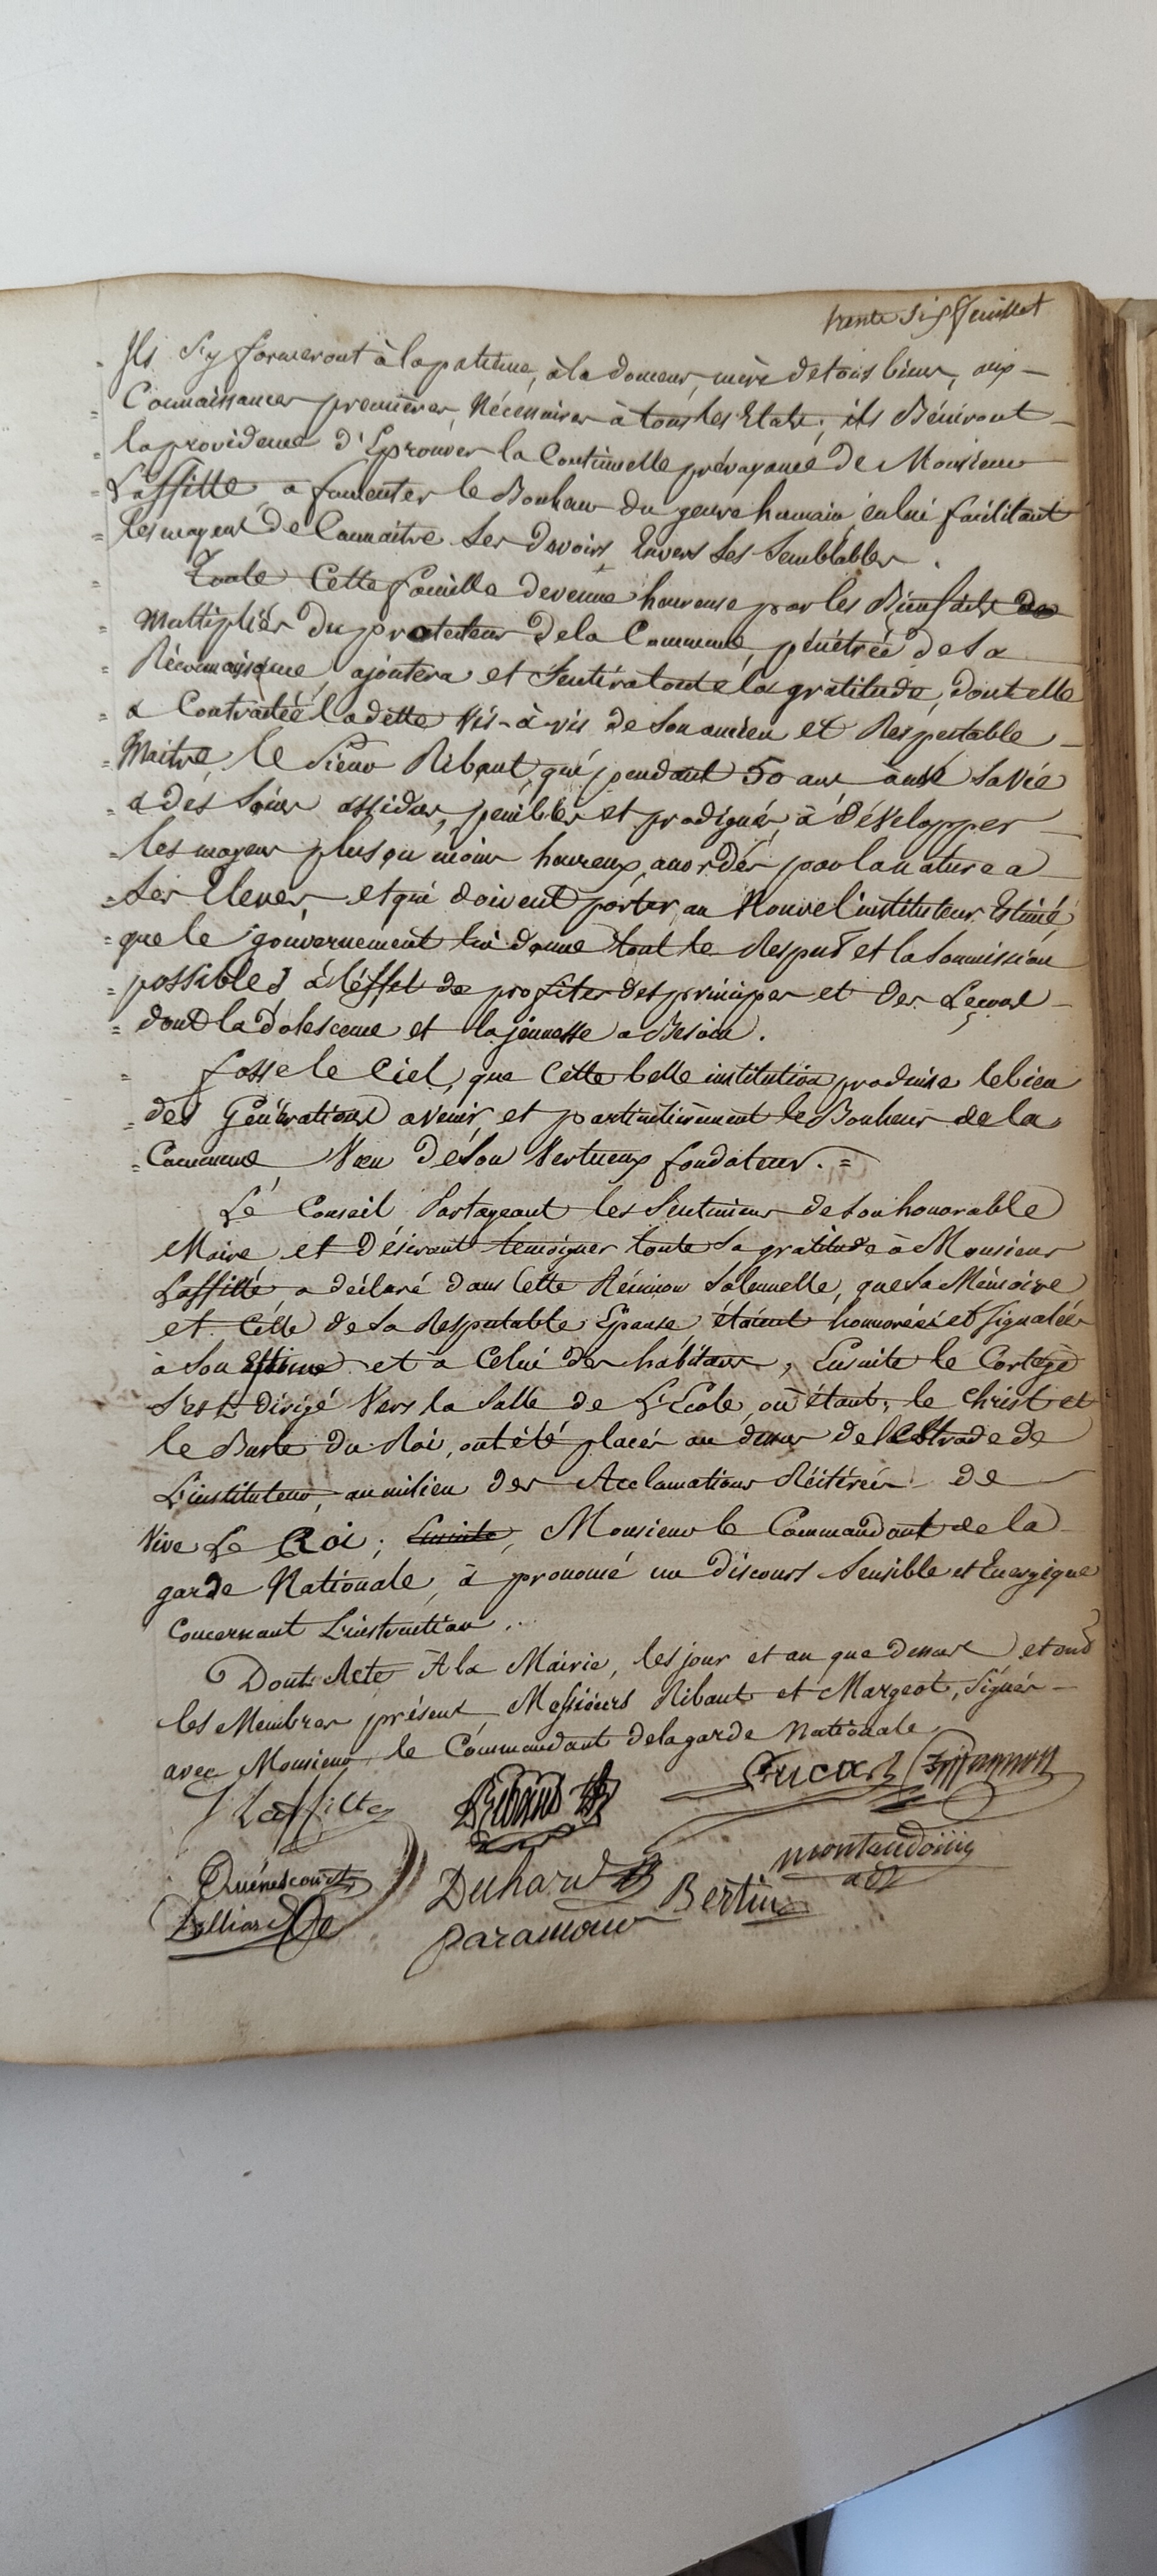 trente six feuillet
Ils s'y formeront à la patience, à la douceur, mère de tous biens, aux
Connaissances premières, Nécessaires à tous les Etats; ils Béniront
la providence d'Eprouver la Continuelle prévoyance de Monsieur
Laffitte, a fomenter le Bonheur du genre humain, en lui facilitant
les moyens de Connaitre Ses Devoirs, Envers Ses Semblables.
Toute Cette famille devenue heureuse par les Bienfaits
Multipliés du protecteur de la Commune, pénétrée de Sa
Réconnaissance, ajoutera et Sentira toute la gratitude, dont elle
a Contractée la dette Vis-à-vis de Son ancien et Respectable
Maitre, le Sieur Ribaut, qui pendant 50 ans Sa Vie
a des Soins assidus, penibles et prodigués, à Développer
les moyens plus ou moins heureux, accordés par la nature a
Ses Eleves, et qui doivent porter au Nouvel instituteur Estimé,
que le gouvernement lui donne tout le Respect et la Soumission
possibles à l'effet de profiter des principes et des Leçons
dont la dolescence et la jeunesse a Besoin.
fasse le Ciel, que Cette belle institution produise le bien
des Générations avenir, et particulièrement le Bonheur de la
Commune Voeu de Son Vertueux fondateur. =
Le Conseil Partageant les Sentimens de Son honorable
Maire et Désirant temoigner toute Sa gratitude à Monsieur
Laffitte, a déclaré dans Cette Réunion Solennelle, que Sa Mémoire
et Celle de Sa Respectable Epouse, étaient honorées et Signalées
à Son Estime et à Celui des habitans, Ensuite le Cortege
S'est dirigé Vers la Salle de L'Ecole, où étant, le Christ et
le Buste du Roi, ont été placés au dessus de l'Estrade de
L'instituteur, au milieu des Acclamations Réitérées de
Vive Le Roi; Ensuite, Monsieur le Commandant de la
garde Nationale, à prononcé un Discours Sensible et Energique
Concernant L'instruction.
Dont Acte A la Mairie, les jour et an que dessus et ont
les Membres présens, Messieurs Ribaut et Margeot, Signés
avec Monsieur le Commandant de la garde Nationale
J Laffitte Ribaut
Quénescourt Duhard Bertin montaudoin
adt
paramour